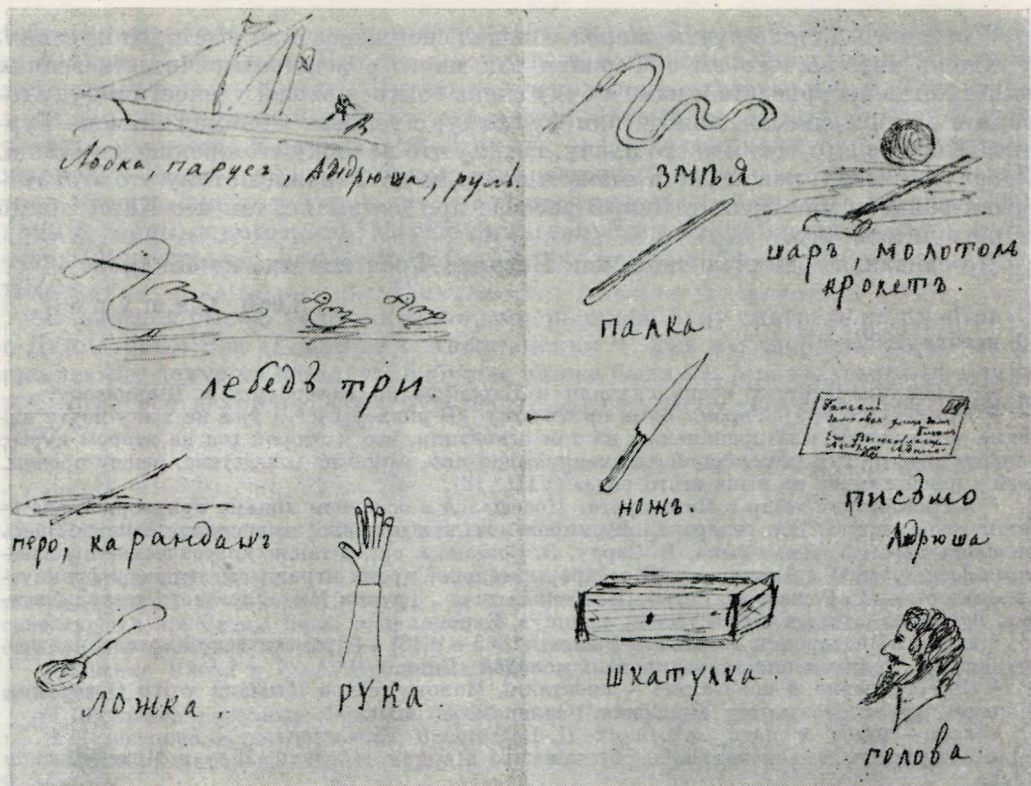 Лодка, парусъ, Андрюша, руль.
лебедь три
перо, карандашъ
ложка.
рука
змѣя
палка
ножъ.
шкатулка.
шаръ, молотокъ
крокетъ.
письмо
Адрюша
голова.